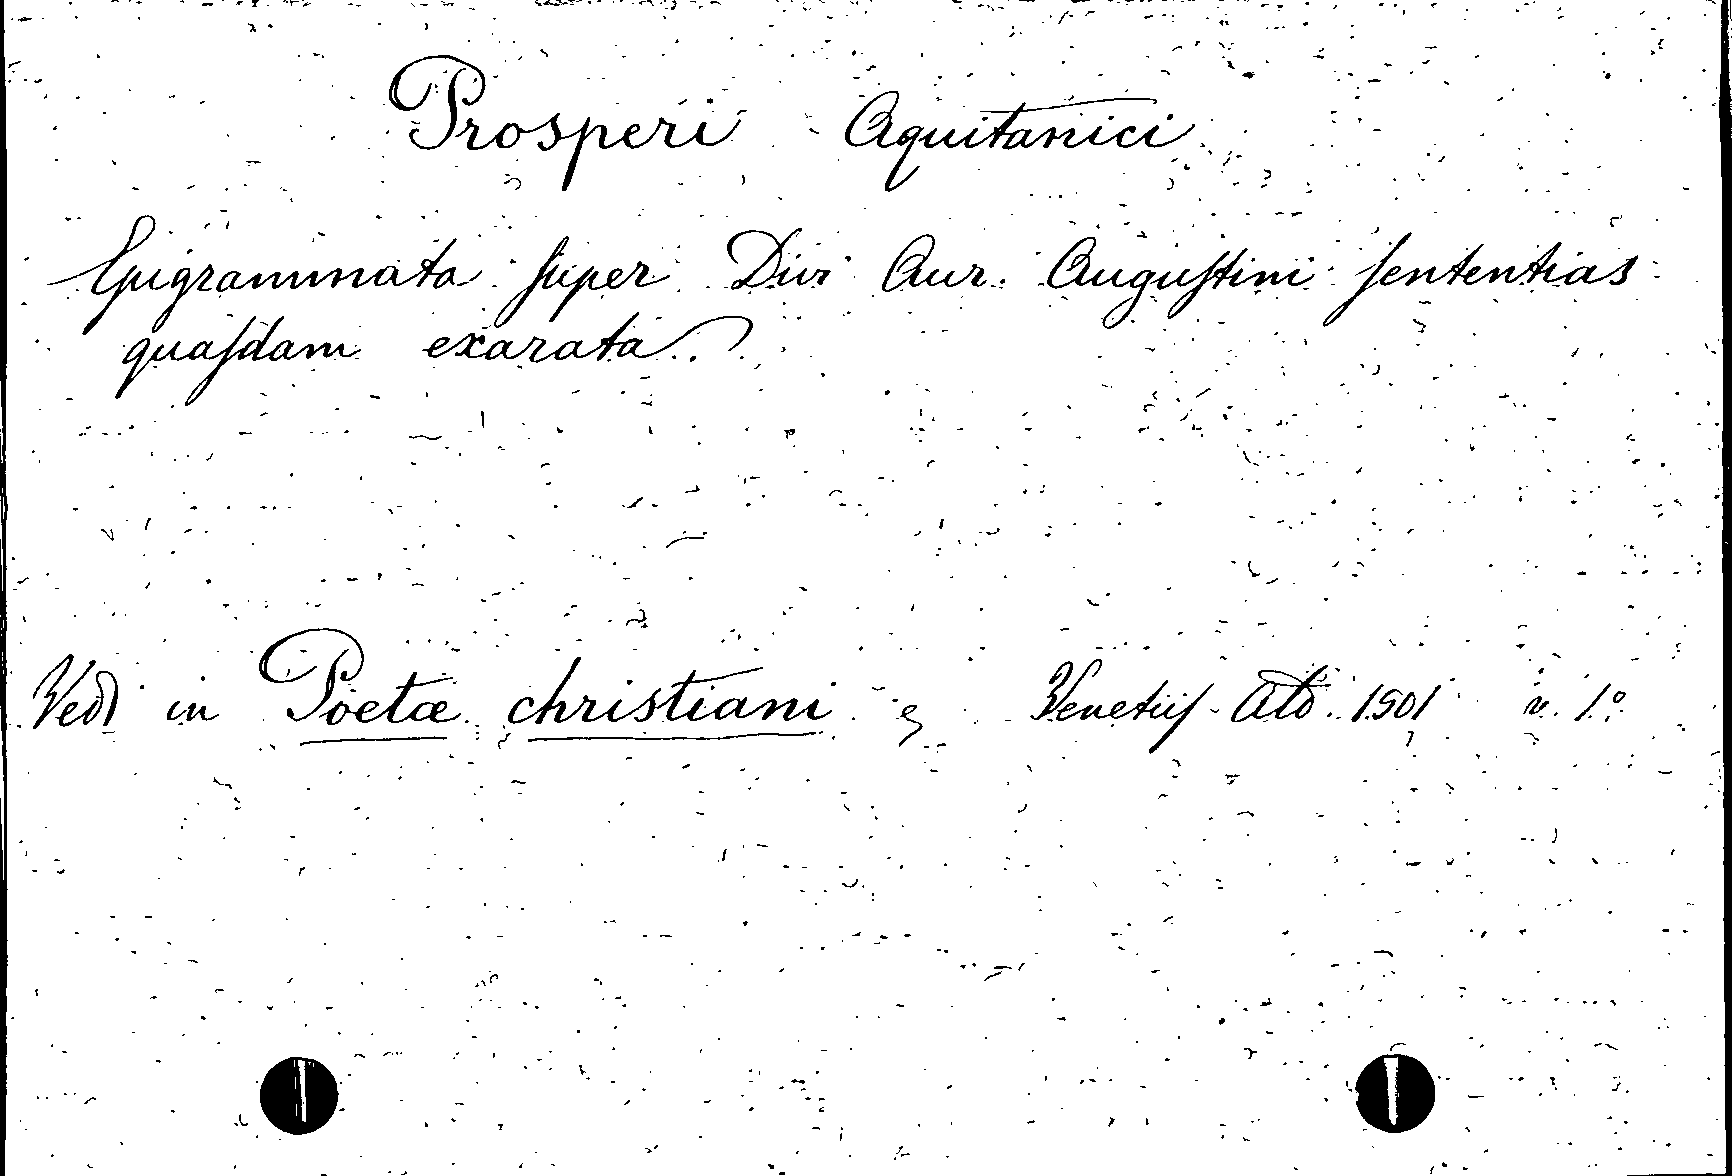 Prosperi Aquitanici
Epigrammata ſuper Divi Aur. Auguſtini ſententias
quaſdam exarata.
Vedi in Poetæ christiani Venetiiſ Ald. 1501 v. 1.º